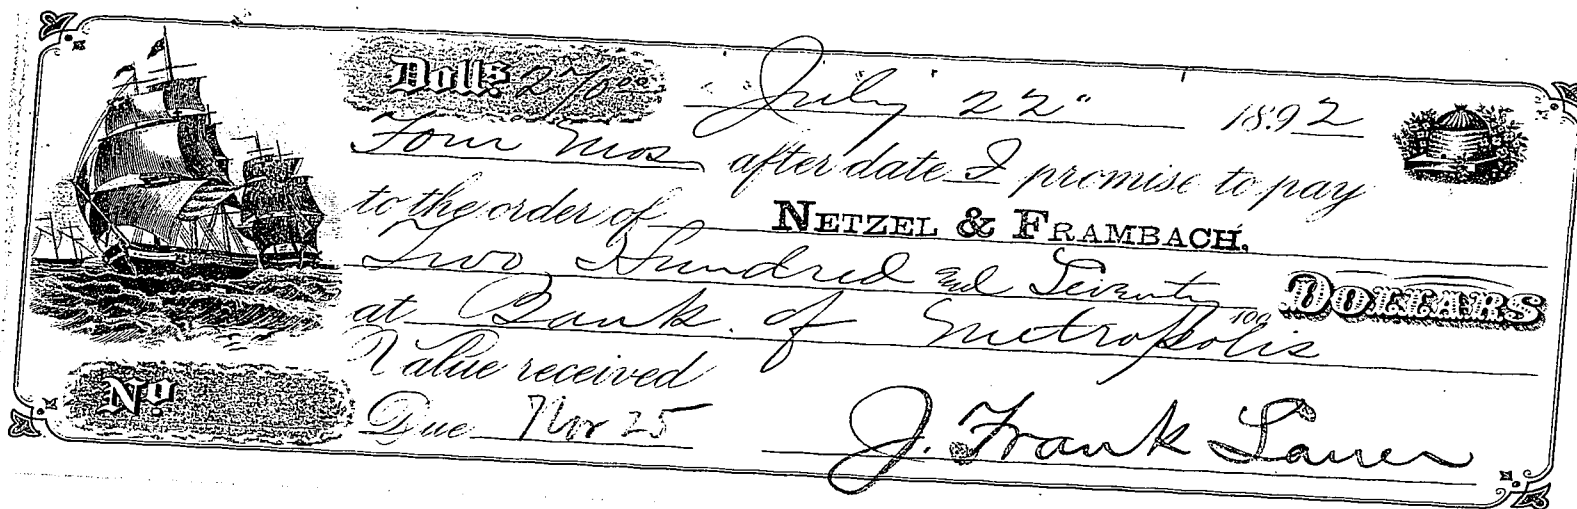 Dolls. 270.00 July 22" 1892
Four Mos after date I promise to pay
to the order of NETZEL & FRAMBACH,
Two Hundred and Seventy 100 DOLLARS
at Bank of Metropolis
Value received
No Due Nov 25 J. Frank